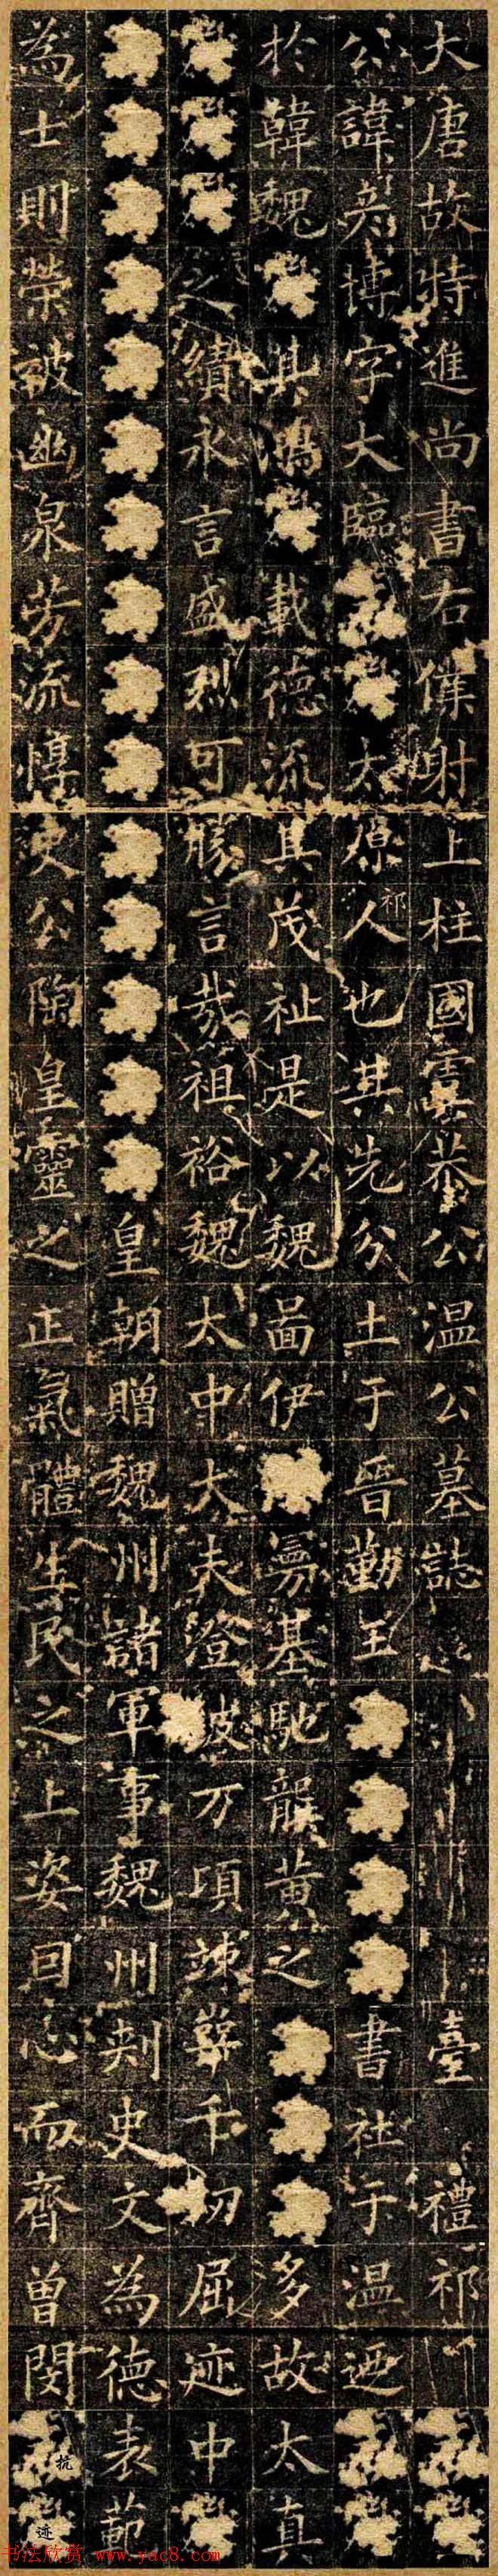 大唐故特進尚書右僕射上柱國虞恭公温公墓誌 臺 禮祁
公諱彦博字大臨 太原人也其先分土于晉勤王 書社于温迺
祁
於韓魏 其鴻 載德流其茂祉是以魏啚伊 夢基馳龔黄之 多故太真
之績永言盛烈可勝言哉祖裕魏太中大夫澄波万頃竦幹千仞屈迹中
皇朝贈魏州諸軍事魏州刺史文為德表範
為士則榮被幽泉芳流惇史公陶皇靈之正氣體生民之上姿因心而齊曾閔
抗 迹
书法欣赏 www.yac8.com